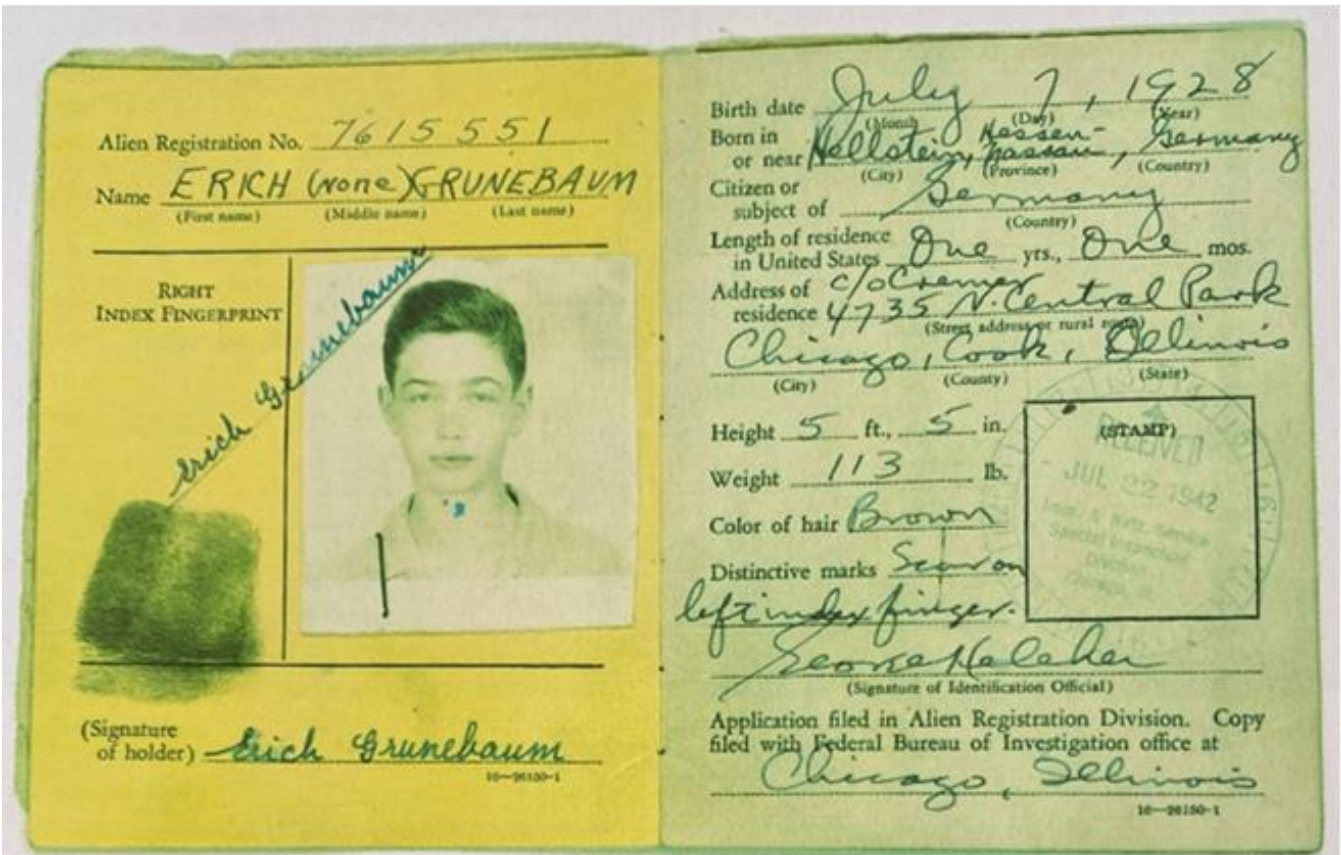 Alien Registration No. 7615551
Name ERICH (none) GRUNEBAUM
(First name) (Middle name) (Last name)
RIGHT
INDEX FINGERPRINT
Erich Grunebaum
(Signature
of holder) Erich Grunebaum
16—26150-1
Birth date July 7, 1928
(Month) (Day) (Year)
Born in
or near Hellstein, Hessen-Nassau, Germany
(City) (Province) (Country)
Citizen or
subject of Germany
(Country)
Length of residence
in United States One yrs., One mos.
Address of c/o Cremer
residence 4735 N. Central Park
(Street address or rural route)
Chicago, Cook, Illinois
(City) (County) (State)
Height 5 ft., 5 in.
Weight 113 lb.
Color of hair Brown
Distinctive marks Scar on
left index finger.
(STAMP)
RECEIVED
JUL 22 1942
Imm. & Natz. Service
Special Inspection
Division
Chicago, Ill.
George
(Signature of Identification Official)
Application filed in Alien Registration Division. Copy
filed with Federal Bureau of Investigation office at
Chicago, Illinois
16—26150-1